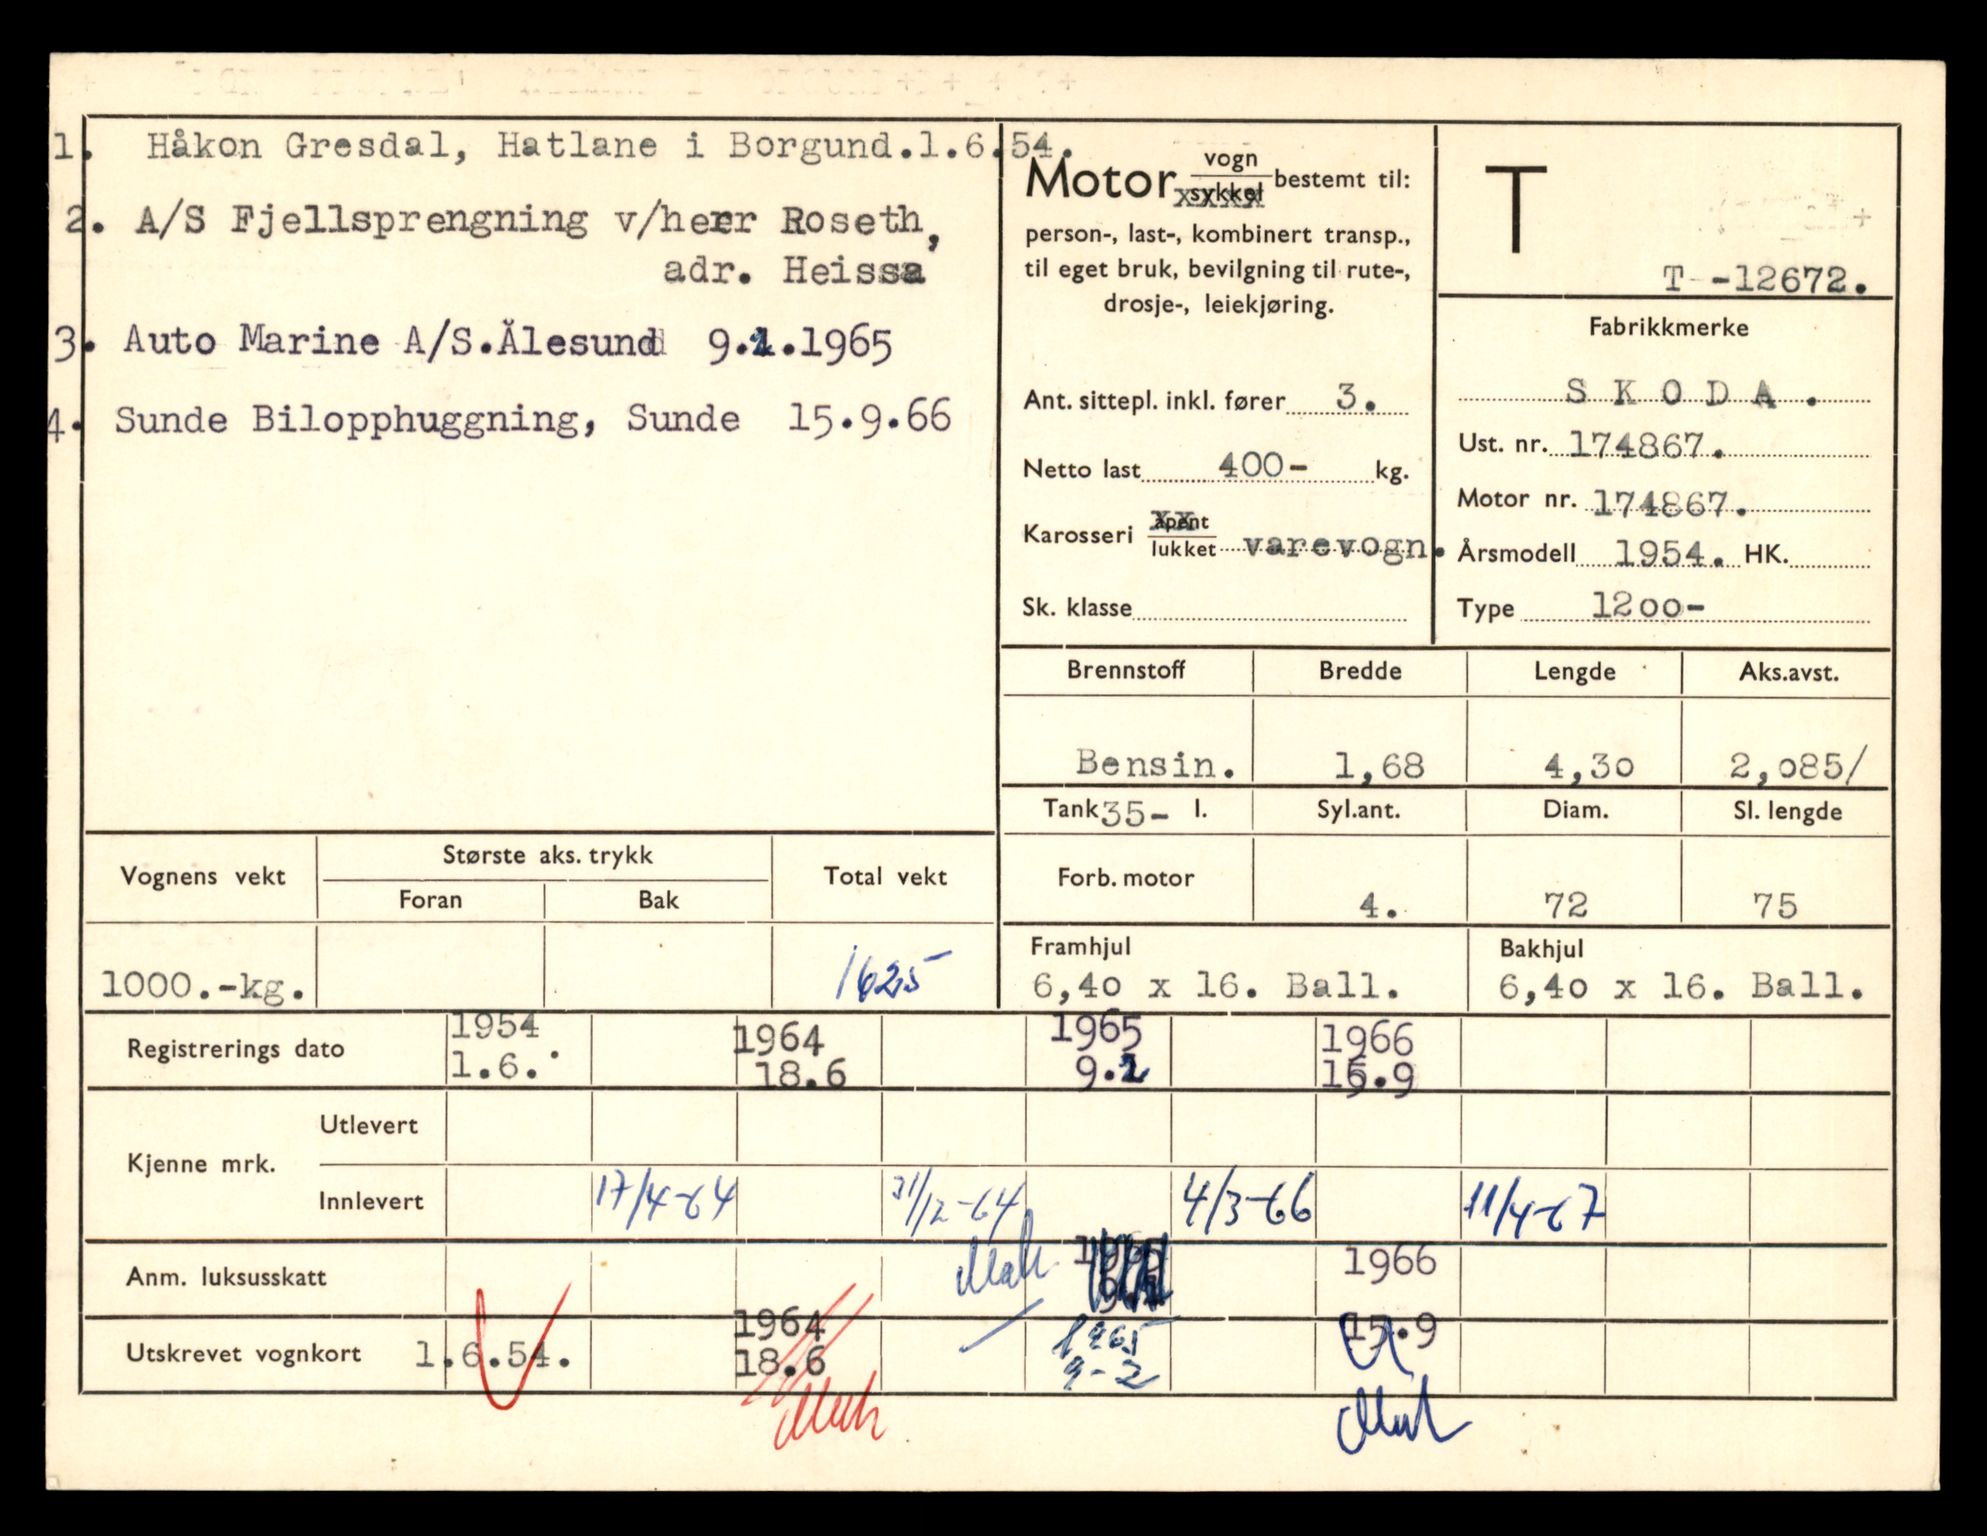 1. Håkon Gresdal, Hatlane i Borgund.1.6.54.
2. A/S Fjellsprengning v/herr Roseth,
adr. Heissa
3. Auto Marine A/S.Ålesund 9.2.1965
4. Sunde Bilopphuggning, Sunde 15.9.66
Motor vogn
sykkel bestemt til:
person-, last-, kombinert transp.,
til eget bruk, bevilgning til rute-,
drosje-, leiekjøring.
Ant. sittepl. inkl. fører 3.
Netto last 400- kg.
Karosseri åpent
lukket varevogn.
Sk. klasse
T
T -12672.
Fabrikkmerke
S K O D A .
Ust. nr. 174867.
Motor nr. 174867.
Årsmodell 1954. HK.
Type 1200-
Brennstoff Bredde Lengde Aks.avst.
Bensin. 1,68 4,30 2,085/
Tank 35- l. Syl.ant. Diam. Sl. lengde
Forb. motor 4. 72 75
Framhjul Bakhjul
6,40 x 16. Ball. 6,40 x 16. Ball.
Vognens vekt Største aks. trykk Total vekt
Foran Bak
1000.-kg. 1625
Registrerings dato 1954 1964 1965 1966
1.6. 18.6 9.2 15.9
Kjenne mrk. Utlevert
Innlevert 17/4-64 31/12-64 4/3-66 11/4-67
Anm. luksusskatt 1966
15.9
Utskrevet vognkort 1.6.54. 1964 1965
18.6 9-2